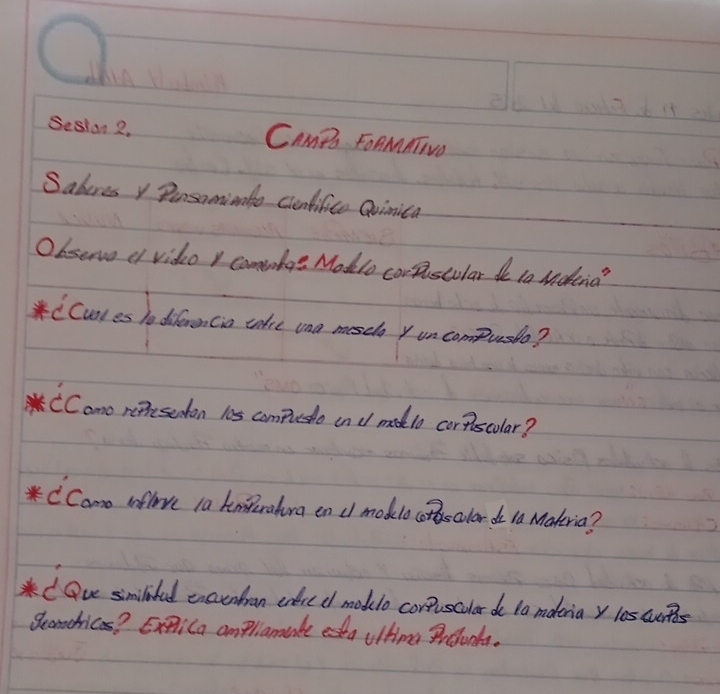 Sesion 2.
CAMPO FORMATIVO
Saberes y Pensamiento científico Quimica
Observe el video y comenta: "Modelo corpuscular de la materia"
* ¿Cual es la diferencia entre una mescla y un compuesto?
* ¿Como representan los compuesto en el modelo corpuscular?
* ¿Como influye la temperatura en el modelo corpuscular de la Materia?
* ¿Que similitud encuentran entre el modelo corpuscular de la materia y los cuerpos
geometricos? Explica ampliamente esta ultima Pregunta.